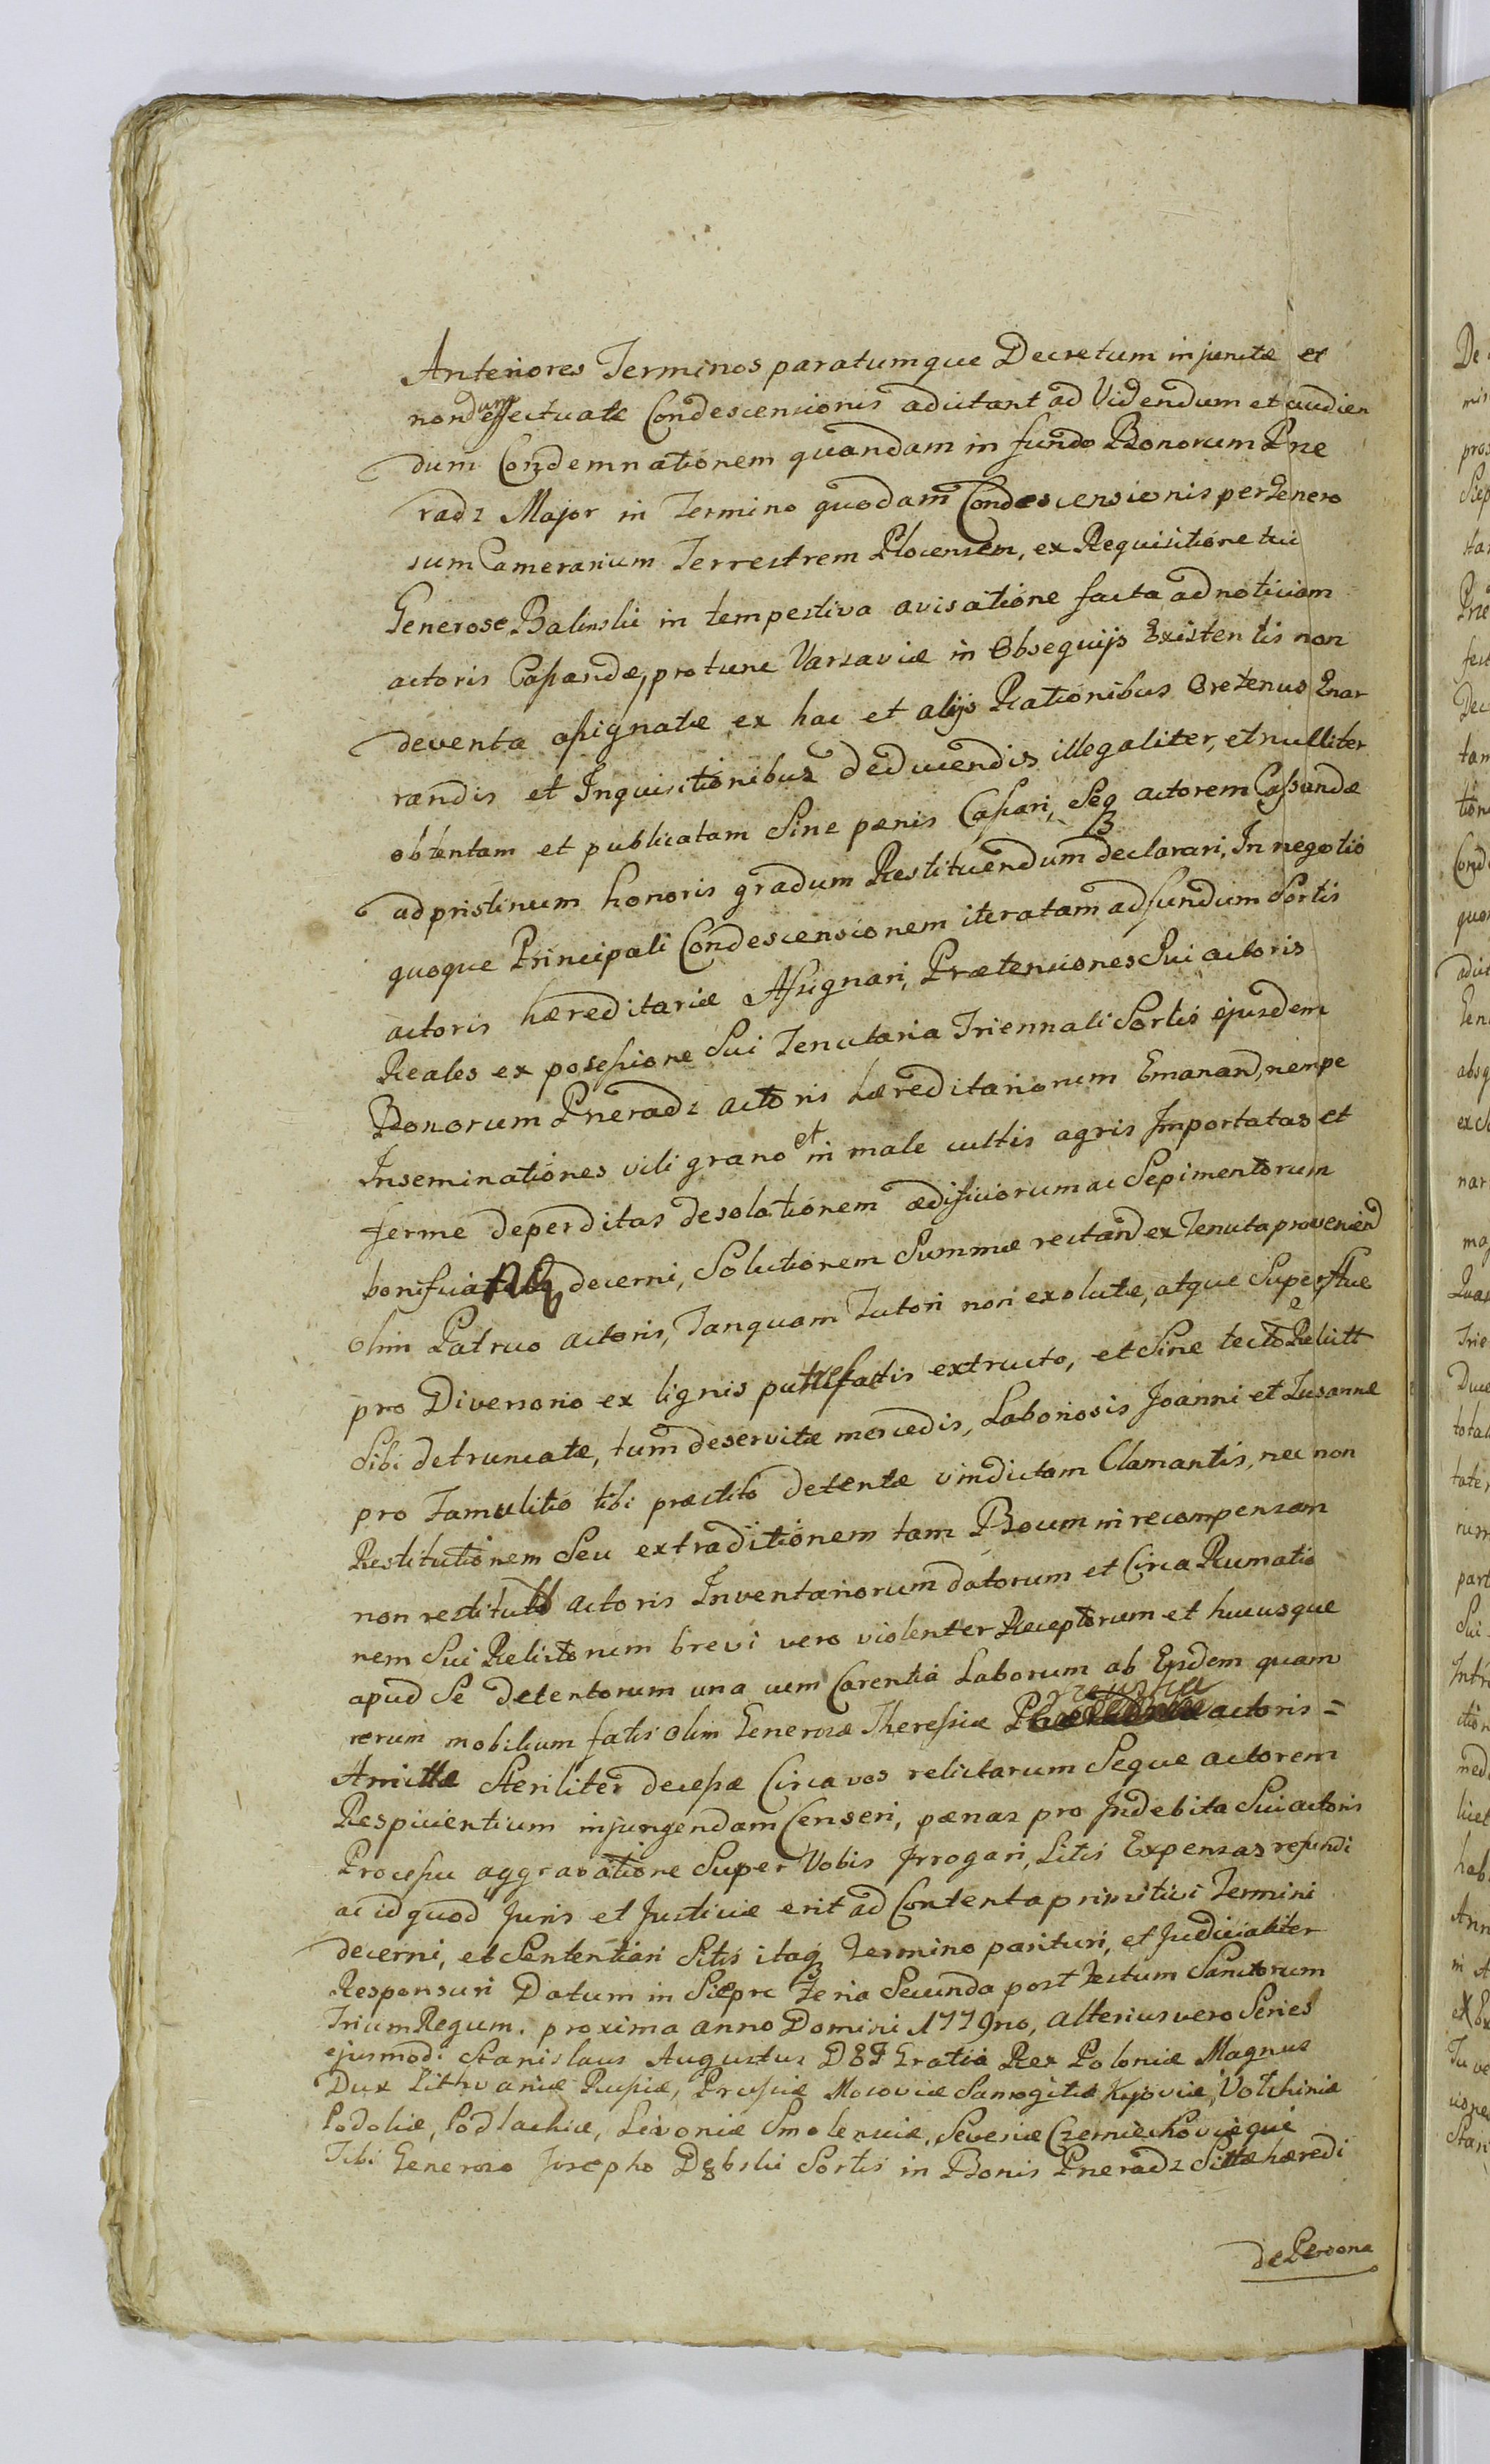 Anteriores Terminos paratumque Decretum injunctæ et
nondum effectuatæ Condescensionis adcitant ad Videndum et audien
dum Condemnationem quandam in fundo Bonorum Pne
radz Major in Termino quodam Condescensionis per Genero
sum Camerarium Terrestrem Plocensem, ex Requisitione tui
Generose Balinski in tempestiva avisatione facta ad noticiam
actoris Cassandæ, pro tunc Varsaviæ in Obsequijs Existentis non
deventa assignatæ ex hac et alijs Rationibus Oretenus Enar
randis et Inquisitionibus deducendis illegaliter, et nulliter
obtentam et publicatam Sine pænis Cassari, Seq actorem Cassandæ
ad pristinum honoris gradum Restituendum declarari, In negotio
quoque Principali Condescensionem iteratam ad fundum Sortis
actoris hæreditariæ Assignari, Prætensiones Sui actoris
Reales ex posessione Sui Tenutaria Triennali Sortis ejusdem
Bonorum Pneradz actoris hæreditariorum Emanand, nempe
Inseminationes vili grano et in male cultis agris Importatas et
ferme deperditas desolationem ædificiorum ac Sepimentorum
decerni, Solutionem Summæ restand ex Tenuta proveniend
olim Patruo actoris, Tanquam Tutori non exolutæ, atque Superflue
pro Diversorio ex lignis putrefactis extructo, et Sine tecto Relictt
Sibi detruncatæ, tum deservitæ mercedis, Laboriosis Joanni et Zusannæ
pro Famulitio tibi præstito detentæ vindictam Clamantis, nec non
Restitutionem Seu extraditionem tam Boum in recompensam
non restitutt actoris Inventariorum datorum et Circa Rumatio
nem Sui Relictorum brevi vero violenter Receptorum et hucusque
apud Se detentorum una cum Carentia Laborum ab Eisdem quam
rerum mobilium fatis olim Generosæ Theressiæ actoris =
Amittæ Steriliter decessæ Circa vos relictarum Seque actorem
Respicientium injungendam Censeri, pænas pro Indebita Sui actoris
Processu aggravatione Super Vobis Irrogari, Litis Expensas refundi
ac id quod Juris et Justiciæ erit ad Contenta primitivi Termini
decerni, et Sententiari Sitis itaq Termino parituri, et Judicialiter
Responsuri Datum in Sieprc Feria Secunda post Festum Sanctorum
Trium Regum. proxima anno Domini 1779no, alterius vero Series
ejusmodi Stanislaus Augustus D8I Gratia Rex Poloniæ Magnus
Dux Lithvaniæ Russiæ, Prussiæ Mosoviæ Samogitiæ Kyoviæ, Volchiniæ
Podoliæ, Podlachiæ, Livoniæ Smolensciæ, Seveniæ Czerniechoviæque
Tibi Generoso Josepho Dębski Sortis in Bonis Pneradz Sittæ hæredi
de Persona